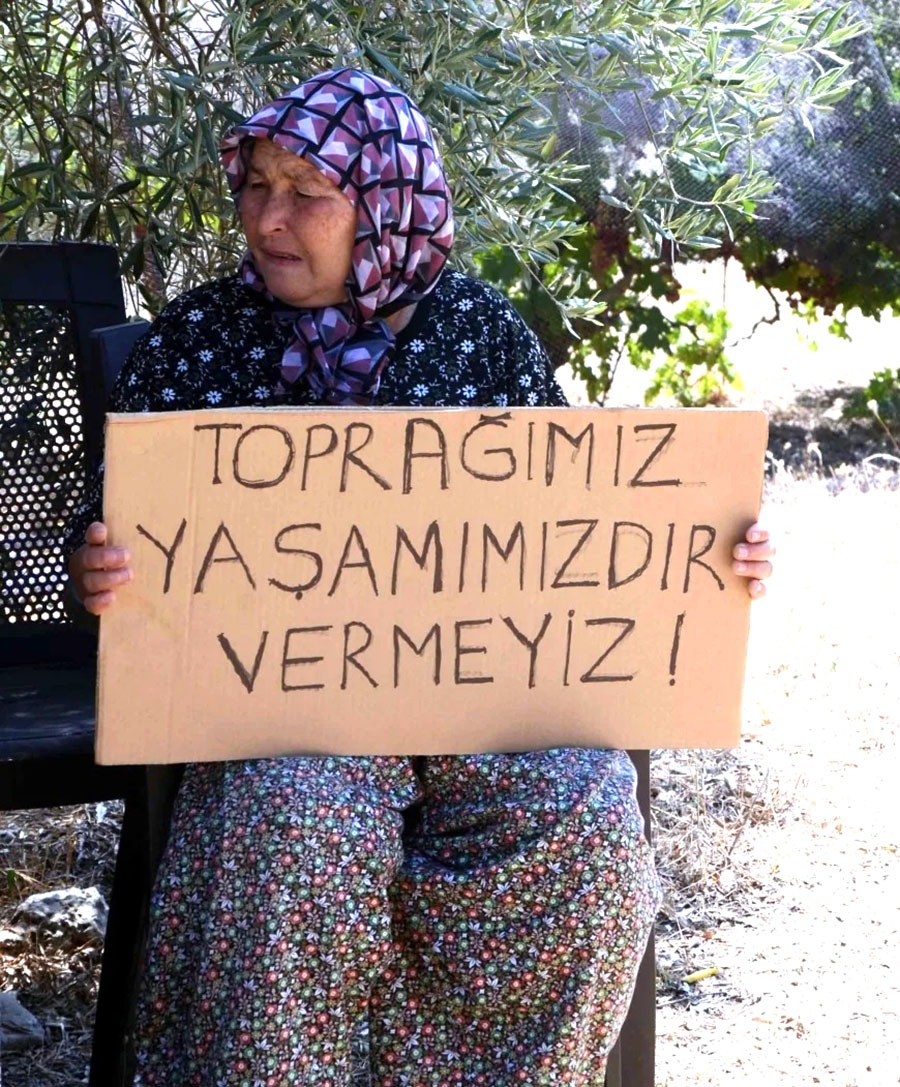 TOPRAĞIMIZ
YAŞAMIMIZDIR
VERMEYİZ!